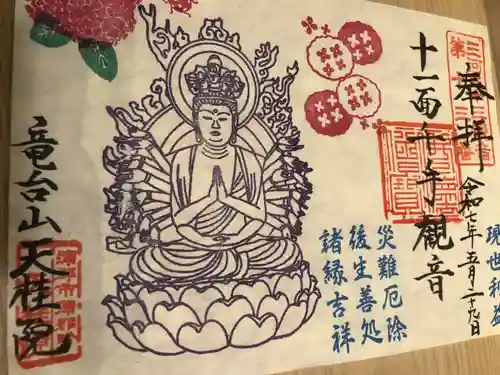 奉拝
令和七年五月二十九日
現世利益
十一面千手観音
災難厄除
後生善処
諸縁吉祥
竜台山天桂院